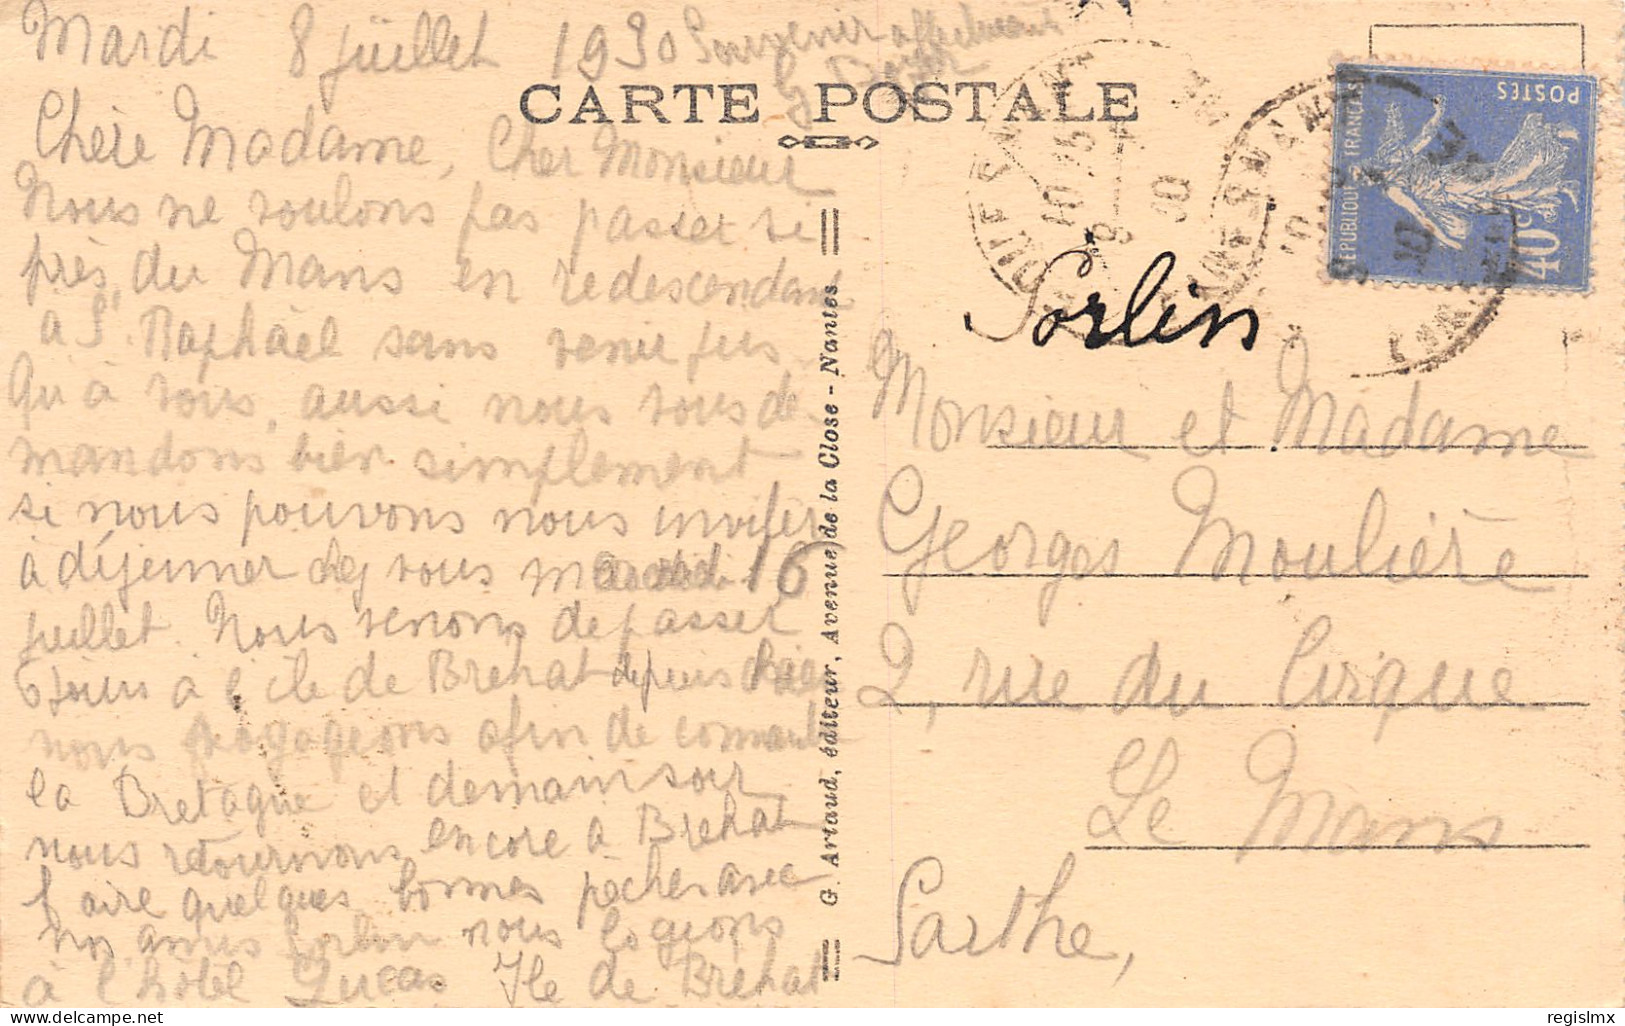 Mardi 8 juillet 1930 Souvenir affectueux
CARTE POSTALE
Chère Madame, Cher Monsieur
Nous ne voulons pas passer si
près du Mans en redescendant
à St Raphaël sans venir jus-
qu'à vous, aussi nous vous de-
mandons bien simplement
si nous pouvons nous inviter
à déjeuner chez vous 16
juillet. Nous venons de passer
6 jours à l'île de Brehat depuis
nous afin de connaitre
la Bretagne et demain soir
nous retournons encore à Brehat
faire quelques bonnes pêches avec
nos amis Sorlin nous logions
à l'hôtel Lucas Ile de Brehat
G. Artaud, éditeur, Avenue de la Close - Nantes
REPUBLIQUE FRANÇAISE
POSTES
40c
10 15
8
30
Sorlin
Monsieur et Madame
Georges Moulière
2, rue du Cirque
Le Mans
Sarthe,
delcampe.net
regislmx